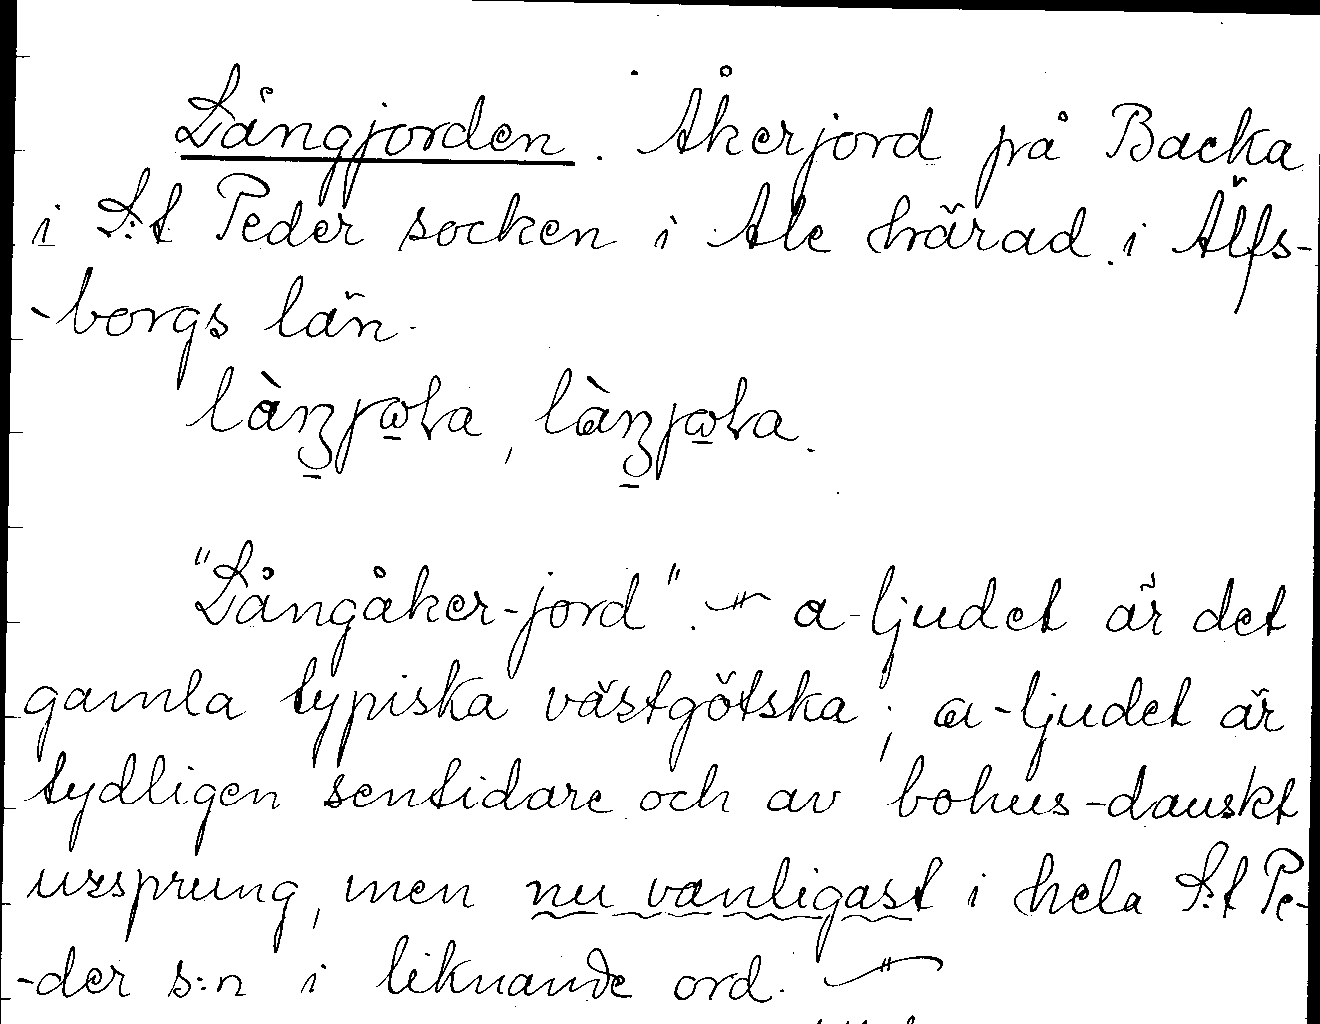 Långjorden. Åkerjord på Backa
i S:t Peder socken i Ale härad i Älfs-
-borgs län.
"Långåker-jord". a-ljudet är det
gamla typiska västgötska; ɑ-ljudet är
tydligen sentidare och av bohus-danskt
ursprung, men nu vanligast i hela S:t Pe-
-der s:n i liknande ord.